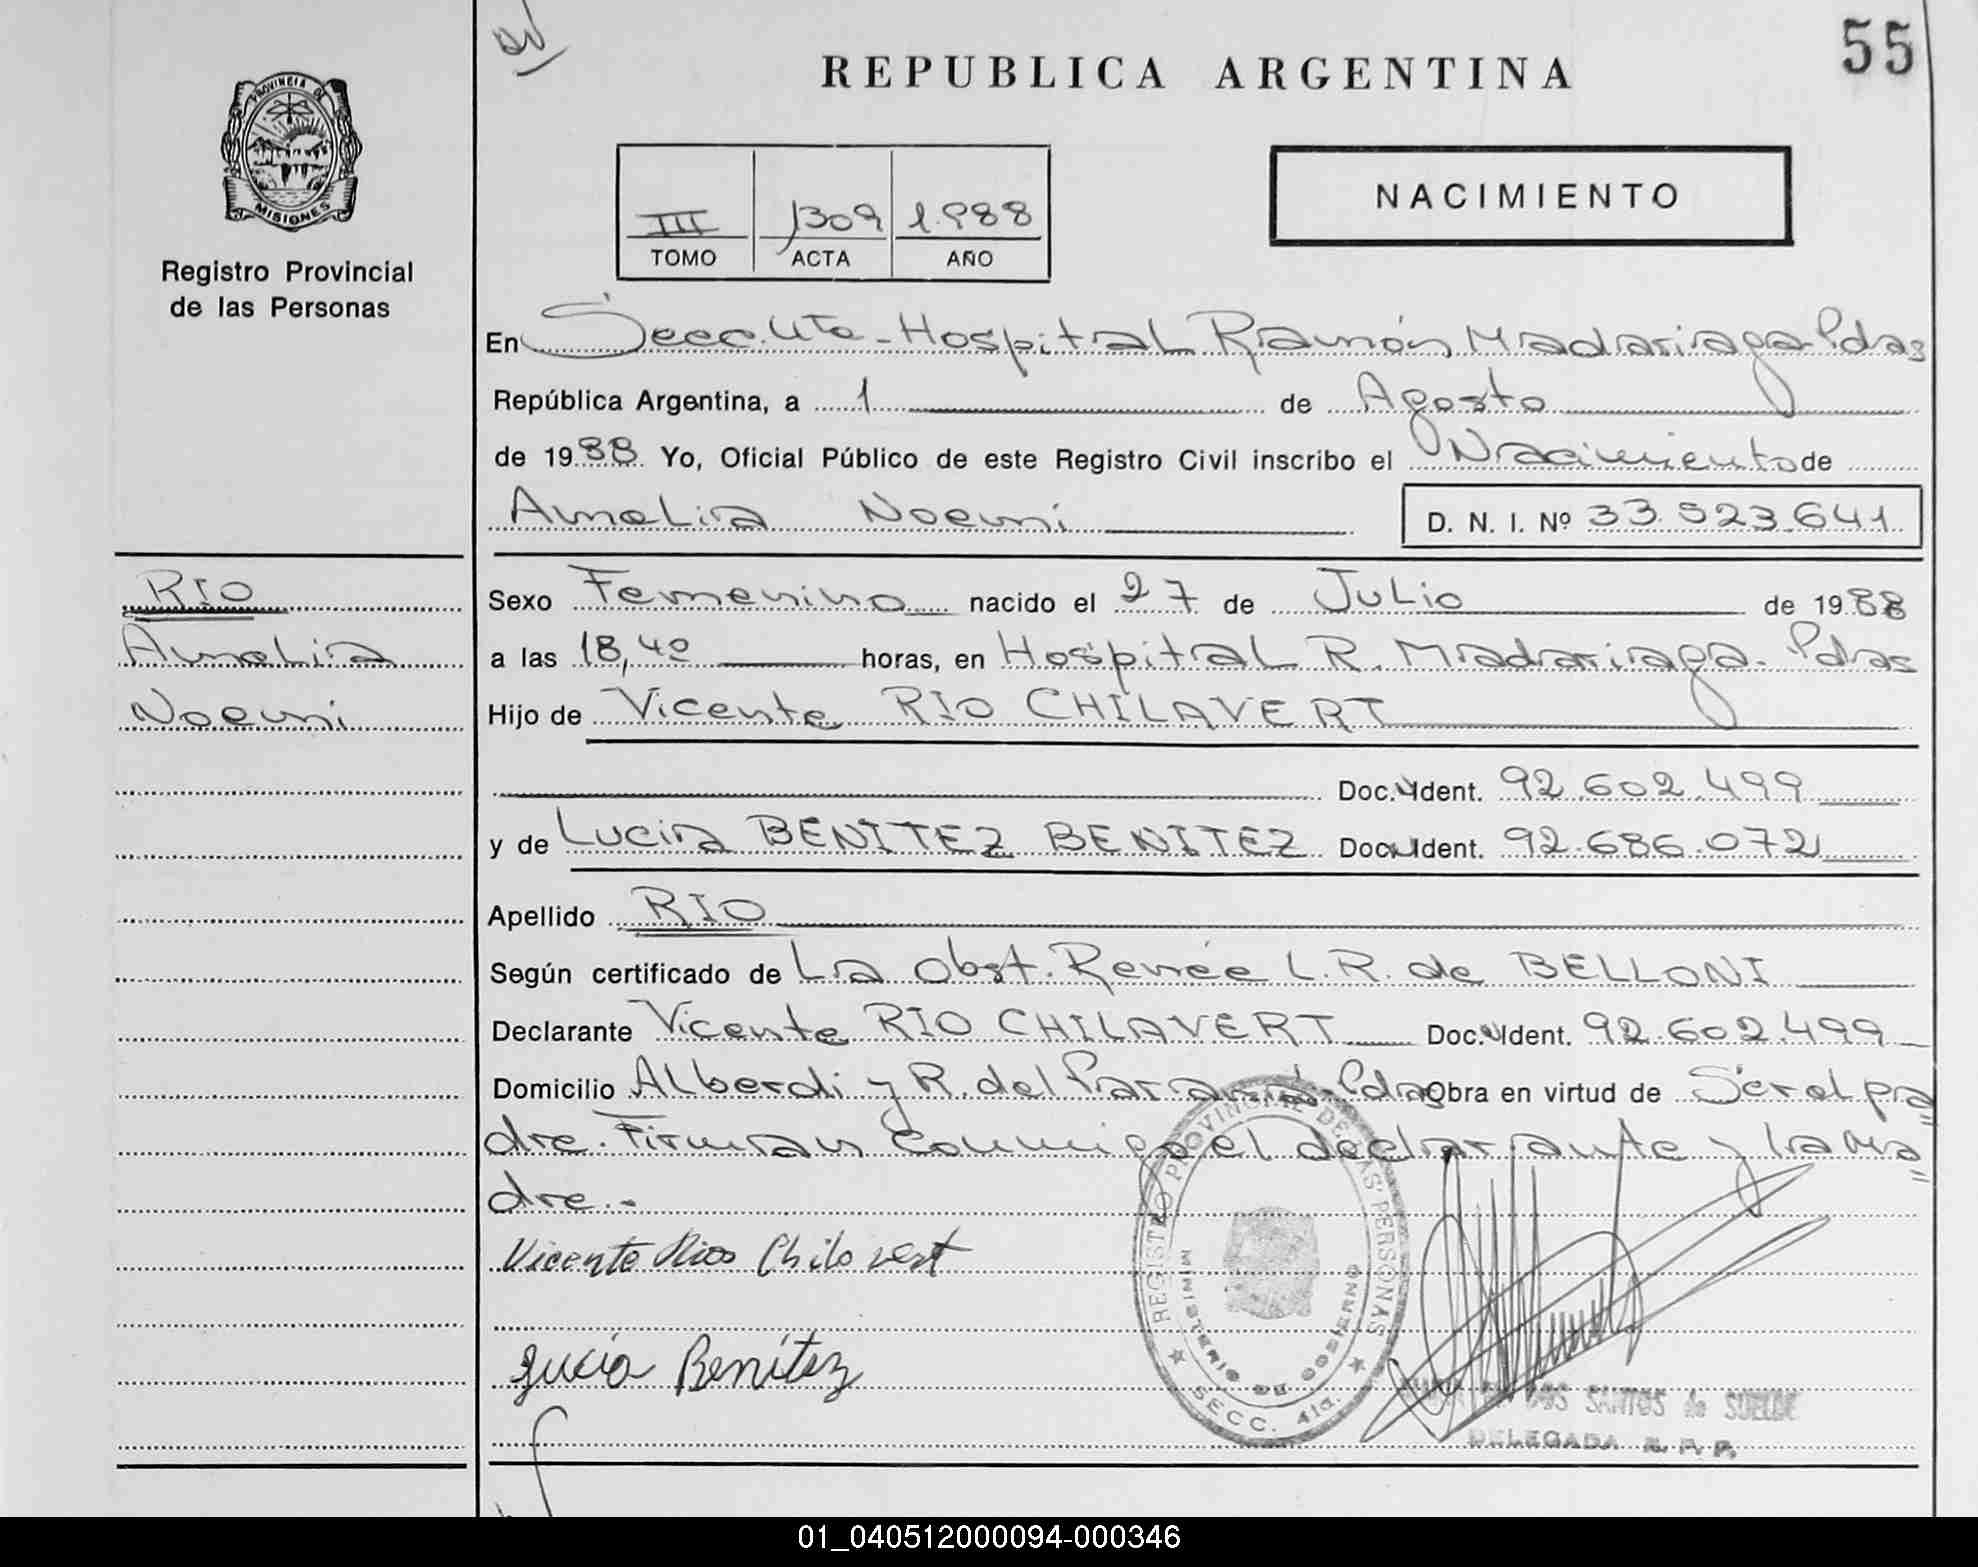 55
REPUBLICA ARGENTINA
PROVINCIA DE
MISIONES
Registro Provincial
de las Personas
NACIMIENTO
III 1309 1.988
TOMO ACTA AÑO
En Secc. 4ta - Hospital Ramón Madariaga Pdas
República Argentina, a 1 de Agosto
de 1988 Yo, Oficial Público de este Registro Civil inscribo el Nacimiento de
Amelia Noemi
D. N. I. Nº 33.523.641
RIO
Amelia
Noemi
Sexo Femenino nacido el 27 de Julio de 1988
a las 18,40 horas, en Hospital R. Madariaga. Pdas
Hijo de Vicente RIO CHILAVERT
Doc. Ident. 92.602.499
y de Lucia BENITEZ BENITEZ Doc. Ident. 92.686.072
Apellido RIO
Según certificado de La Obst. Renée L. R. de BELLONI
Declarante Vicente RIO CHILAVERT Doc. Ident. 92.602.499
Domicilio Alberdi y R. del Paraná - Pdas Obra en virtud de Ser el pa=
dre. Firman conmigo el declarante y la ma=
dre.-
Vicente Rios Chilavert
Lucía Benítez
REGISTRO PROVINCIAL DE LAS PERSONAS
MINISTERIO DE GOBIERNO
SECC. 4ta.
DOS SANTOS de
DELEGADA R. P. P.
01_040512000094-000346